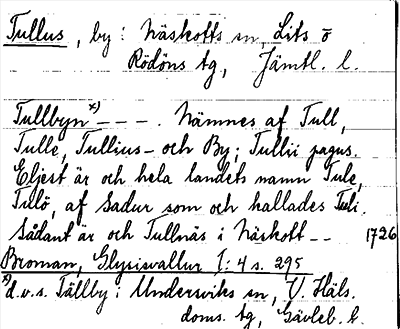 Tullus, by: Näskotts sn, Lits o
Rödöns tg, Jämtl. l.
Tullbyn x) - - - . Nämnes af Tull,
Tulle, Tullius - och By; Tullii pagus.
Eljest är och hela landets namn Tule,
Tulö, af Sadur som och hallades Tuli.
Sådant är och Tullnäs i Näskott - - 1726
Broman, Glysisvallur I: 4 s. 295
x) d.v.s. Tällby: Undersviks sn, V. Häls.
doms. tg, Gävleb. l.